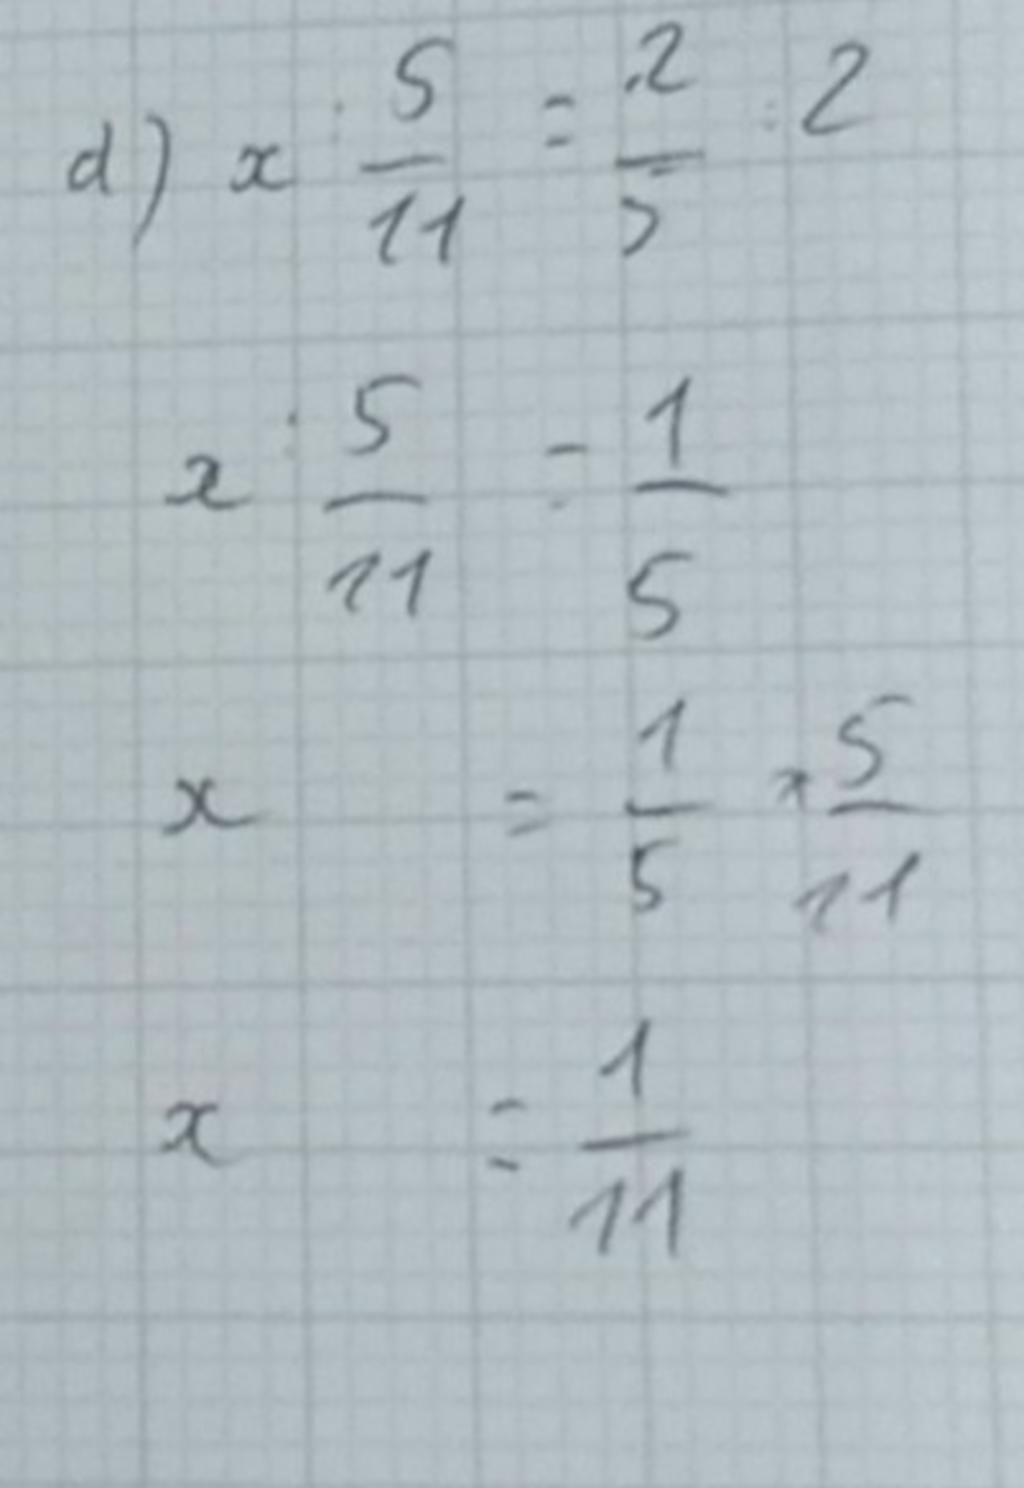 d) x : 5/11 = 2/5 : 2
x : 5/11 = 1/5
x = 1/5 × 5/11
x = 1/11